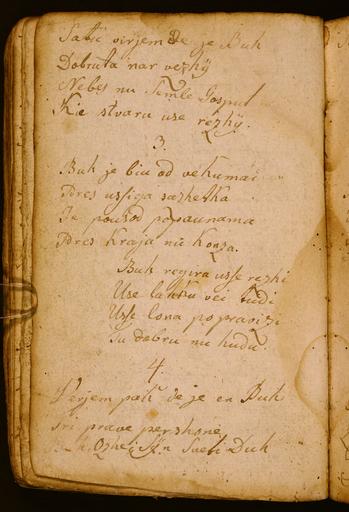 Satu virjem de je Buh
Dobruta nar vezhÿ
Nebes nu Semle Gosput
Kie stvaru use rezhÿ.
3.
Buh je biu od vekumai
Pres ussiga sazhetka
Tu pousod popaunama
Pres kraja nu konza.
Buh regira usse rezhi
Use lanku vei tudi
Usse lona po pravizi
Tu dobru nu hudu.
4.
Verjem pak de je en Buh
tri prave pershone
Ozhe Sÿn Sueti Duh